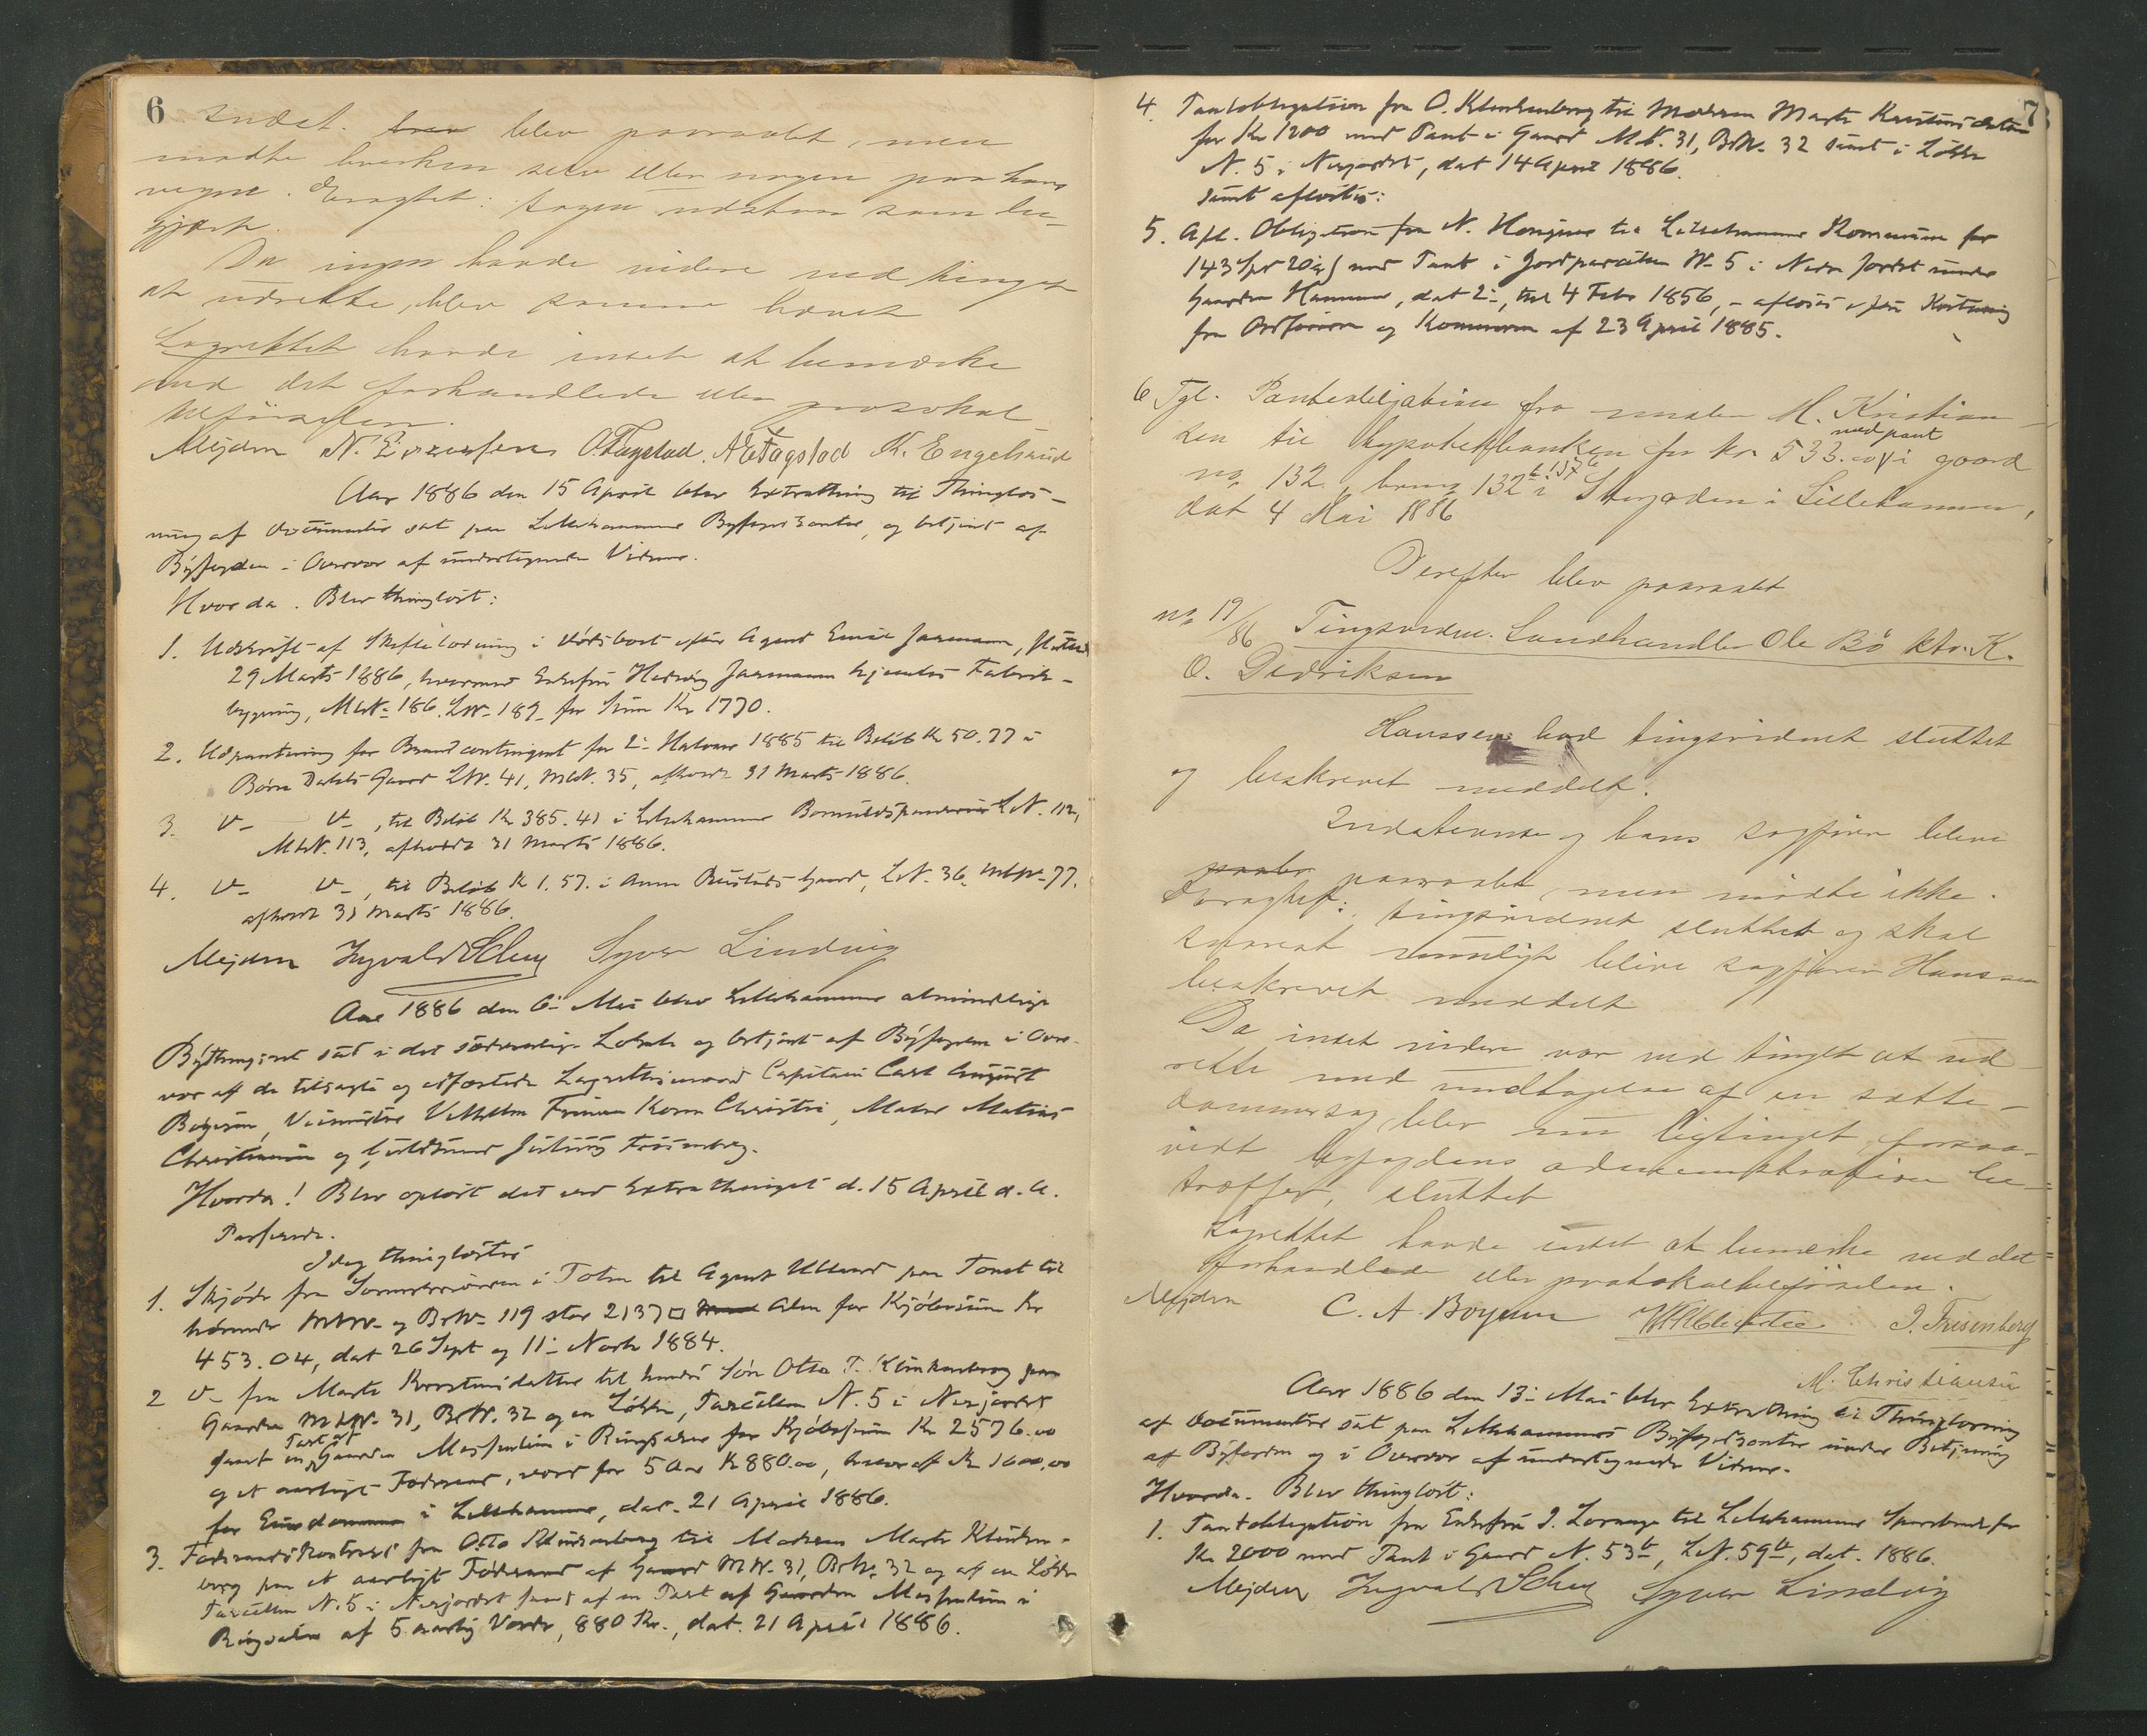 6
Indst. blev paaraabt, men
mødte hverken selv eller nogen paa hans
vegne. Eragtet: sagen udstaar som be-
gjært.
Da ingen havde videre ved tinget
at udrette, blev samme hævet
Lagrettet havde intet at bemærke
ved det forhandlede eller protokol
tilførselen.
Mejdem N. O. Fagstad. A Fagstad K. Engelsrud
Aar 1886 den 15 April blev Extrathing til Thinglæs-
ning af Documenter sat paa Lillehammer Byfogedcontor, og betjent af
Byfogden i Overvær af undertegnede Vidner.
Hvorda. Blev thinglöst:
1. Udskrift af Skiftelodning i Dödsboet efter Agent Emil Jarmann, sluttet
29 Marts 1886, hvorved Enkefru Hedvig Jarmann hjemles Fabrik-
bygning, MtN. 186. LN. 189 for Sum Kr 1770.
2. Udpantning for Brandcontingent for 2. Halvaar 1885 til Belöb Kr 50.77 i
Børre Dahls Gaard LN. 41, MtN. 35, afholdt 31 Marts 1886.
3. D- D-, til Belöb Kr 385.41 i Lillehammer Bomuldspinderis LN. 112,
MtN. 113, afholdt 31 Marts 1886.
4. D- D-, til Belöb Kr 1.57. i Anne Bustads Gaard, LN. 36. MtN. 77.
afholdt 31 Marts 1886.
Mejdem Ingvald Schey Syver Lindvig
Aar 1886 den 6. Mai blev Lillehammer almindelige
Bything sat i det sædvanlige Lokale og betjent af Byfogden i Over-
vær af de tilsagte og edfæstede Lagrettesmænd Capitain Carl August
Boyesen, Veimester Vilhelm Frimann Koren Christie, Maler Matias
Christiansen og Guldsmed Julius Frisenberg.
Hvorda! Blev oplæst det ved Extrathinget d. 15 April d. A.
Passerede.
Idag thinglæstes
1. Skjöde fra Sommer i Toten til Agent Ulland paa Tomt til
hørende MtN. og BrN. 119 stor 2137 □ Alen for Kjöbesum Kr
453.04, dat 26 Sept og 11. Novbr 1884.
2 D- fra Marte Kristensdatter til hendes Sön Otto T. Klinkenberg paa
Gaarden MtN. 31, BrN. 32 og en Løkke, Parcellen N. 5 i Nerjordet
samt en Part af Gaarden i Ringsaker for Kjöbesum Kr 2576.00
og et aarligt Føderaad, værd for 5 Aar Kr 880.00, hvoraf Kr 1600.00
for Eiendommen i Lillehammer, dat. 21 April 1886.
3. Föderaadskontrakt fra Otto Klinkenberg til Moderen Marte Klinken-
berg paa et aarligt Föderaad af Gaard MtN. 31, BrN. 32 og af en Løkke
Parcellen N. 5 i Nerjordet samt af en Part af Gaarden i
Ringsaker af 5 aarlig Værdi, 880 Kr., dat. 21 April 1886.
7
4. Pantobligation fra O. Klinkenberg til Moderen Marte Kristensdatter
for Kr 1200 med Pant i Gaard MtN. 31, BrN. 32 samt i Løkke
N. 5 i Nerjordet, dat 14 April 1886.
Samt aflæstes:
5. Afl. Obligation fra N. Hansen til Lillehammer Kommune for
143 Spd 20 med Pant i Jordparcellen N. 5 i Nedre Jordet under
Gaarden Hammer, dat 2., thl 4 Febr 1856, - aflæses efter Kvittering
fra Ordføreren og Kommunen af 23 April 1885.
6 Tgl. Panteobligation fra maler M. Kristian-
sen til hypotekbanken for kr. 533.00 med pant i gaard
no 132, brno 132b i Storgaden i Lillehammer,
dat 4 Mai 1886
Derefter blev paaraabt
no 19/86 Tingsvidne. Landhandler Ole Bö ktr. K.
O. Didriksen
Hanssen bad tingsvidnet sluttet
og beskrevet meddelt.
Indstevnte og hans sagfører bleve
paaraabt, men mødte ikke.
Eragtet: tingsvidnet sluttet og skal
snarest muligt blive sagfører Hanssen
beskrevet meddelt
Da intet videre var ved tinget at ud
rette med undtagelse af en sætte-
dommersag, blev nu bytinget, forsaa-
vidt byfogdens administration be-
træffer, sluttet
Lagrettet havde intet at bemærke ved det
forhandlede eller protokoltilførselen.
Mejdem C. A. Boyesen J. Frisenberg
M. Christiansen
Aar 1886 den 13. Mai blev Extrathing til Thinglæsning
af Documenter sat paa Lillehammers Byfogedcontor under Betjening
af Byfogden og i Overvær af undertegnede Vidner.
Hvorda. Blev thinglöst:
1. Pantobligation fra Enkefru J. Lorange til Lillehammer Sparebank for
Kr. 2000 med Pant i Gaard N. 53b, LN. 59b, dat. 1886.
Mejdem Ingvald Schey Syver Lindvig